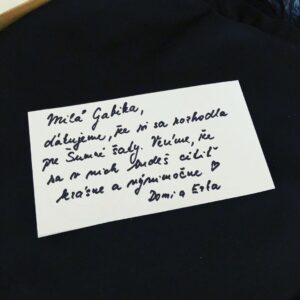 Milá Gabika,
ďakujeme, že si sa rozhodla
pre Šumné šaty. Veríme, že
sa v nich budeš cítiť
krásne a výnimočne ♡
Domi a Erla